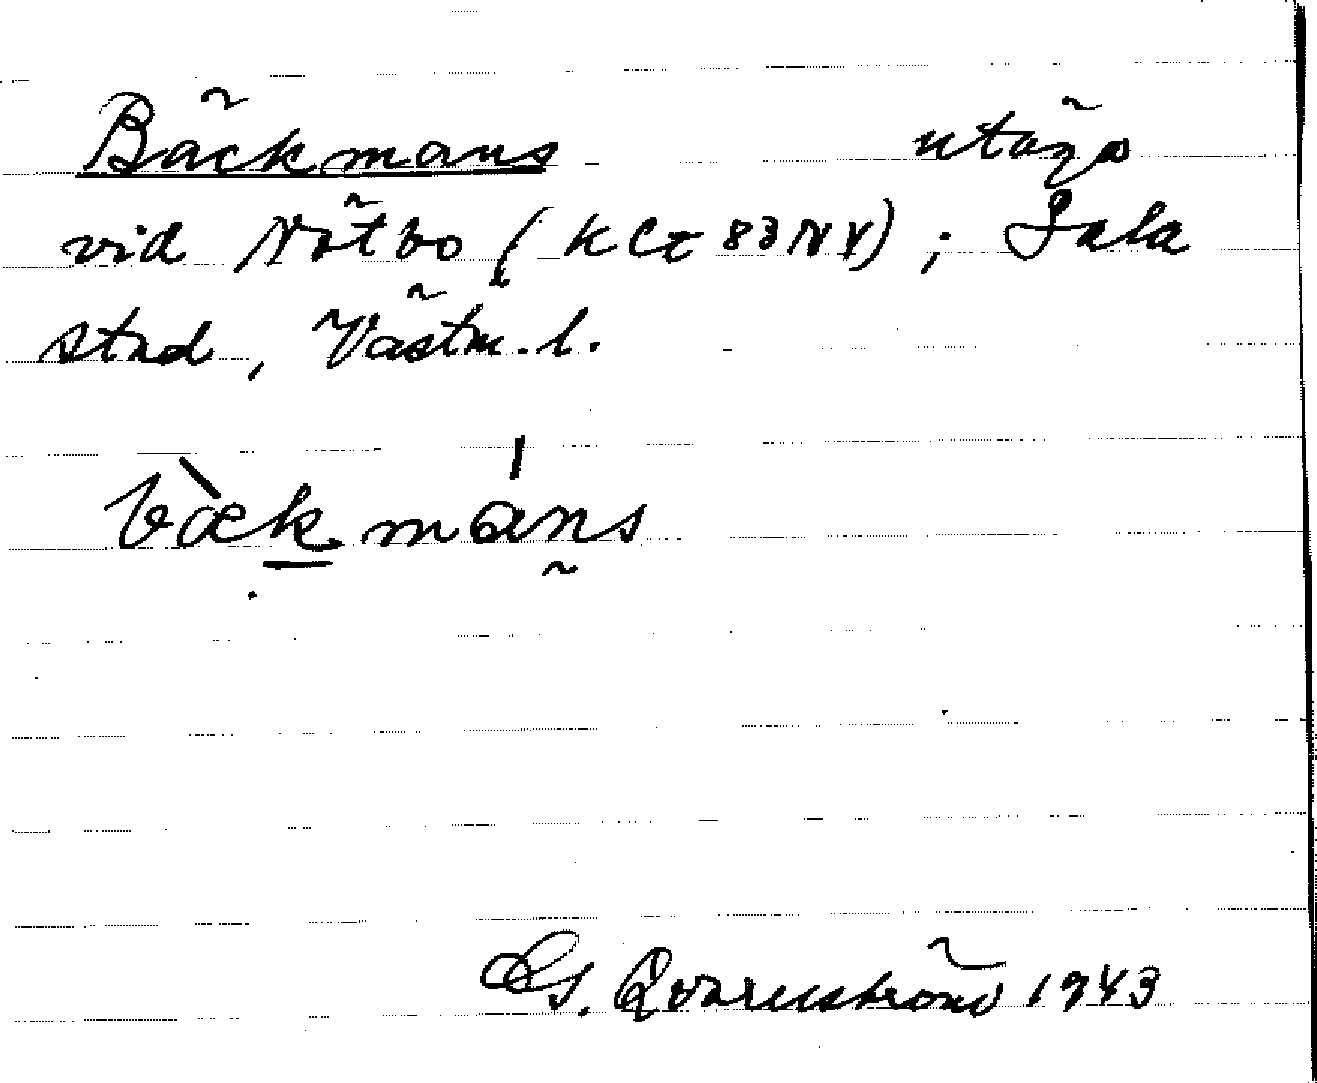 Bäckmans utäga
vid Nötbo (KCt 83 NV); Sala
stad, Västm. l.
bæ̀k máns
G. Qvarnström 1943